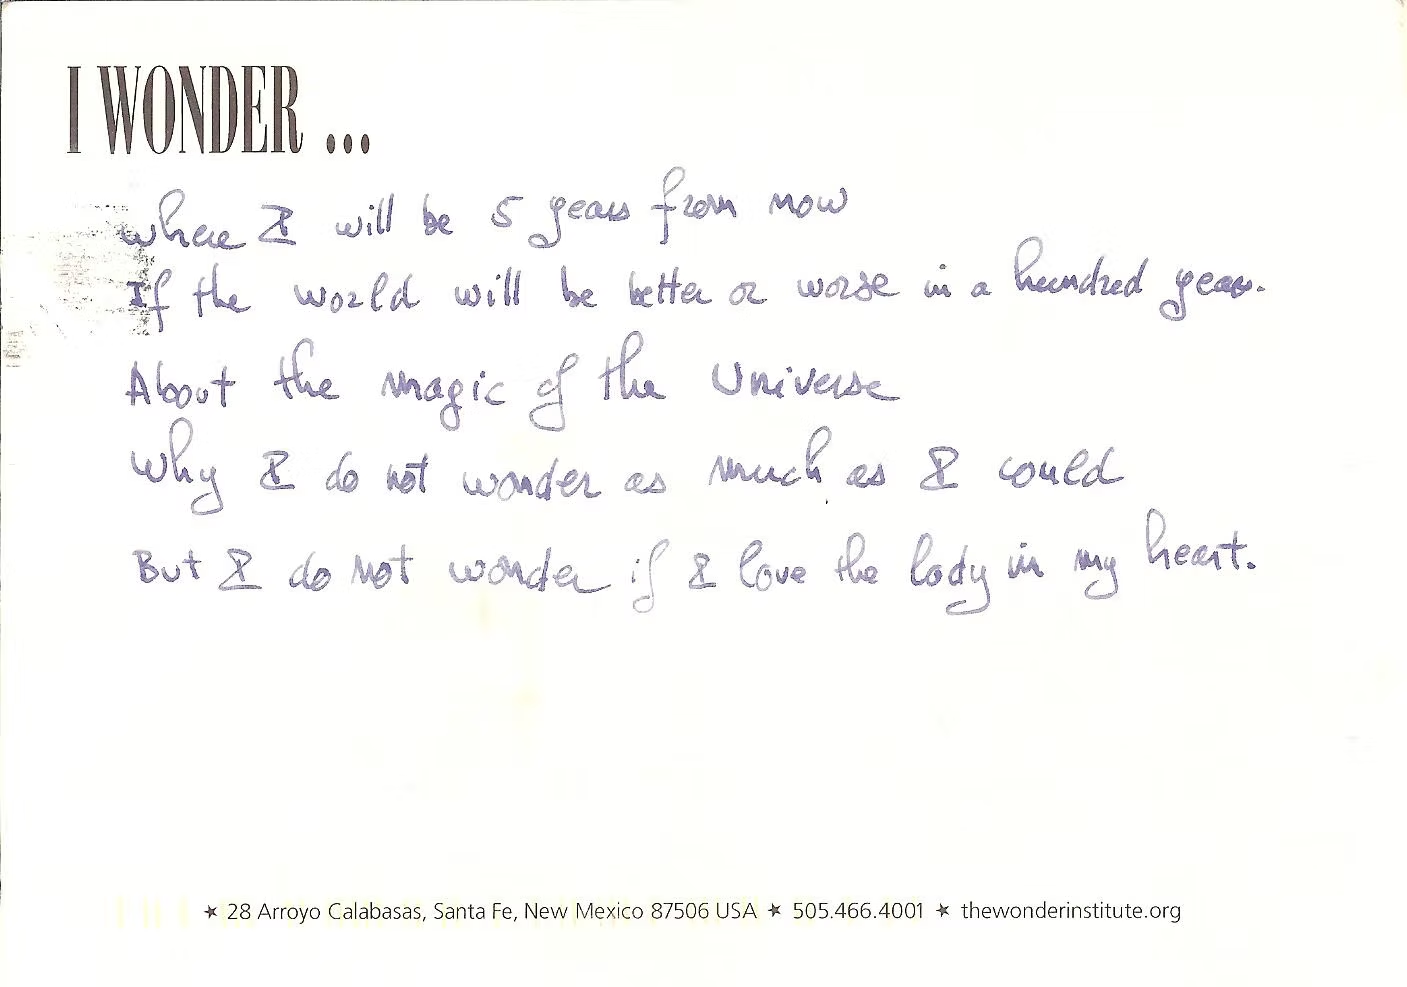 I WONDER ...
where I will be 5 years from now
If the world will be better or worse in a hundred years.
About the magic of the Universe
Why I do not wonder as much as I could
But I do not wonder if I love the lady in my heart.
★ 28 Arroyo Calabasas, Santa Fe, New Mexico 87506 USA ★ 505.466.4001 ★ thewonderinstitute.org